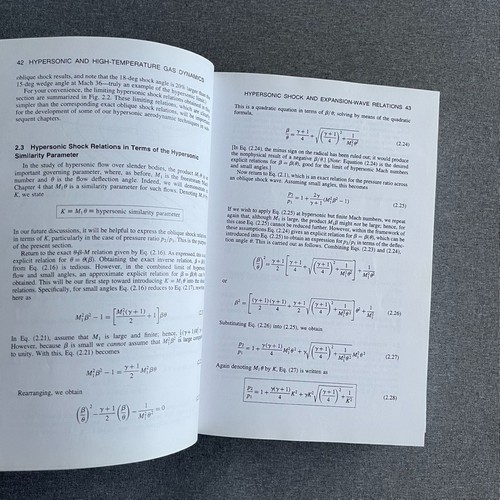 42 HYPERSONIC AND HIGH-TEMPERATURE GAS DYNAMICS
oblique shock results, and note that the 18-deg shock angle is 20% larger than the
15-deg wedge angle at Mach 36—truly an example of the hypersonic
For your convenience, the limiting hypersonic shock relations obtained in this
section are summarized in Fig. 2.2. These limiting relations, which are clearly
simpler than the corresponding exact oblique shock relations, will be important
for the development of some of our hypersonic aerodynamic techniques in
sequent chapters.
2.3 Hypersonic Shock Relations in Terms of the Hypersonic
Similarity Parameter
In the study of hypersonic flow over slender bodies, the product M₁θ is an
important governing parameter, where, as before, M₁ is the freestream Mach
number and θ is the flow deflection angle. Indeed, we will demonstrate in
Chapter 4 that M₁θ is a similarity parameter for such flows. Denoting M₁θ by
K, we state
K = M₁θ ≡ hypersonic similarity parameter
In our future discussions, it will be helpful to express the oblique shock relations
in terms of K, particularly in the case of pressure ratio p₂/p₁. This is the purpose
of the present section.
Return to the exact θ-β-M relation given by Eq. (2.16). As expressed, this is an
explicit relation for θ = θ(β). Obtaining the exact inverse relation, β =
from Eq. (2.16) is tedious. However, in the combined limit of hypersonic
flow and small angles, an approximate explicit relation for β = β(θ) can be
obtained. This will be our first step toward introducing K = M₁θ into the
relations. Specifically, for small angles Eq. (2.16) reduces to Eq. (2.17),
here as
M₁²β² − 1 = [M₁²(γ + 1)/2 + 1] βθ
In Eq. (2.21), assume that M₁ is large and finite; hence,
However, because β is small we cannot assume that M₁²β² is large compared
to unity. With this, Eq. (2.21) becomes
M₁²β² − 1 = γ + 1/2 M₁²βθ
Rearranging, we obtain
(β/θ)² − γ + 1/2 (β/θ) − 1/M₁²θ² = 0
HYPERSONIC SHOCK AND EXPANSION-WAVE RELATIONS 43
This is a quadratic equation in terms of β/θ; solving by means of the quadratic
formula,
β/θ = γ + 1/4 + √((γ + 1/4)² + 1/M₁²θ²) (2.24)
[In Eq. (2.24), the minus sign on the radical has been ruled out; it would produce
the nonphysical result of a negative β/θ.] [Note: Equation (2.24) is the desired
explicit relations for β = β(M₁, θ), good for the limit of hypersonic Mach numbers
and small angles.]
Now return to Eq. (2.1), which is an exact relation for the pressure ratio across
an oblique shock wave. Assuming small angles, this becomes
p₂/p₁ = 1 + 2γ/γ + 1 (M₁²β² − 1) (2.25)
If we wish to apply Eq. (2.25) at hypersonic but finite Mach numbers, we repeat
again that, although M₁ is large, the product M₁β might not be large; hence, for
this case Eq. (2.25) cannot be reduced further. However, within the framework of
these assumptions Eq. (2.24) gives an explicit relation for β = β(θ), which can be
introduced into Eq. (2.25) to obtain an expression for p₂/p₁ in terms of the deflec-
tion angle θ. This is carried out as follows. Combining Eqs. (2.23) and (2.24),
(β/θ)² = γ + 1/2 [γ + 1/4 + √((γ + 1/4)² + 1/M₁²θ²)] + 1/M₁²θ²
or
β² = [(γ + 1)(γ + 1)/2 4 + γ + 1/2 √((γ + 1/4)² + 1/M₁²θ²)] θ² + 1/M₁² (2.26)
Substituting Eq. (2.26) into (2.25), we obtain
p₂/p₁ = 1 + γ(γ + 1)/4 M₁²θ² + γ√((γ + 1/4)² + 1/M₁²θ²) M₁²θ² (2.27)
Again denoting M₁θ by K, Eq. (27) is written as
p₂/p₁ = 1 + γ(γ + 1)/4 K² + γK²√((γ + 1/4)² + 1/K²) (2.28)